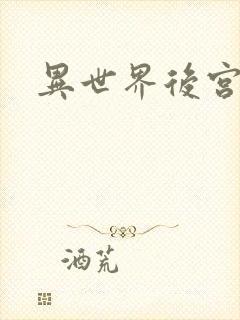 異世界後宮
酒荒